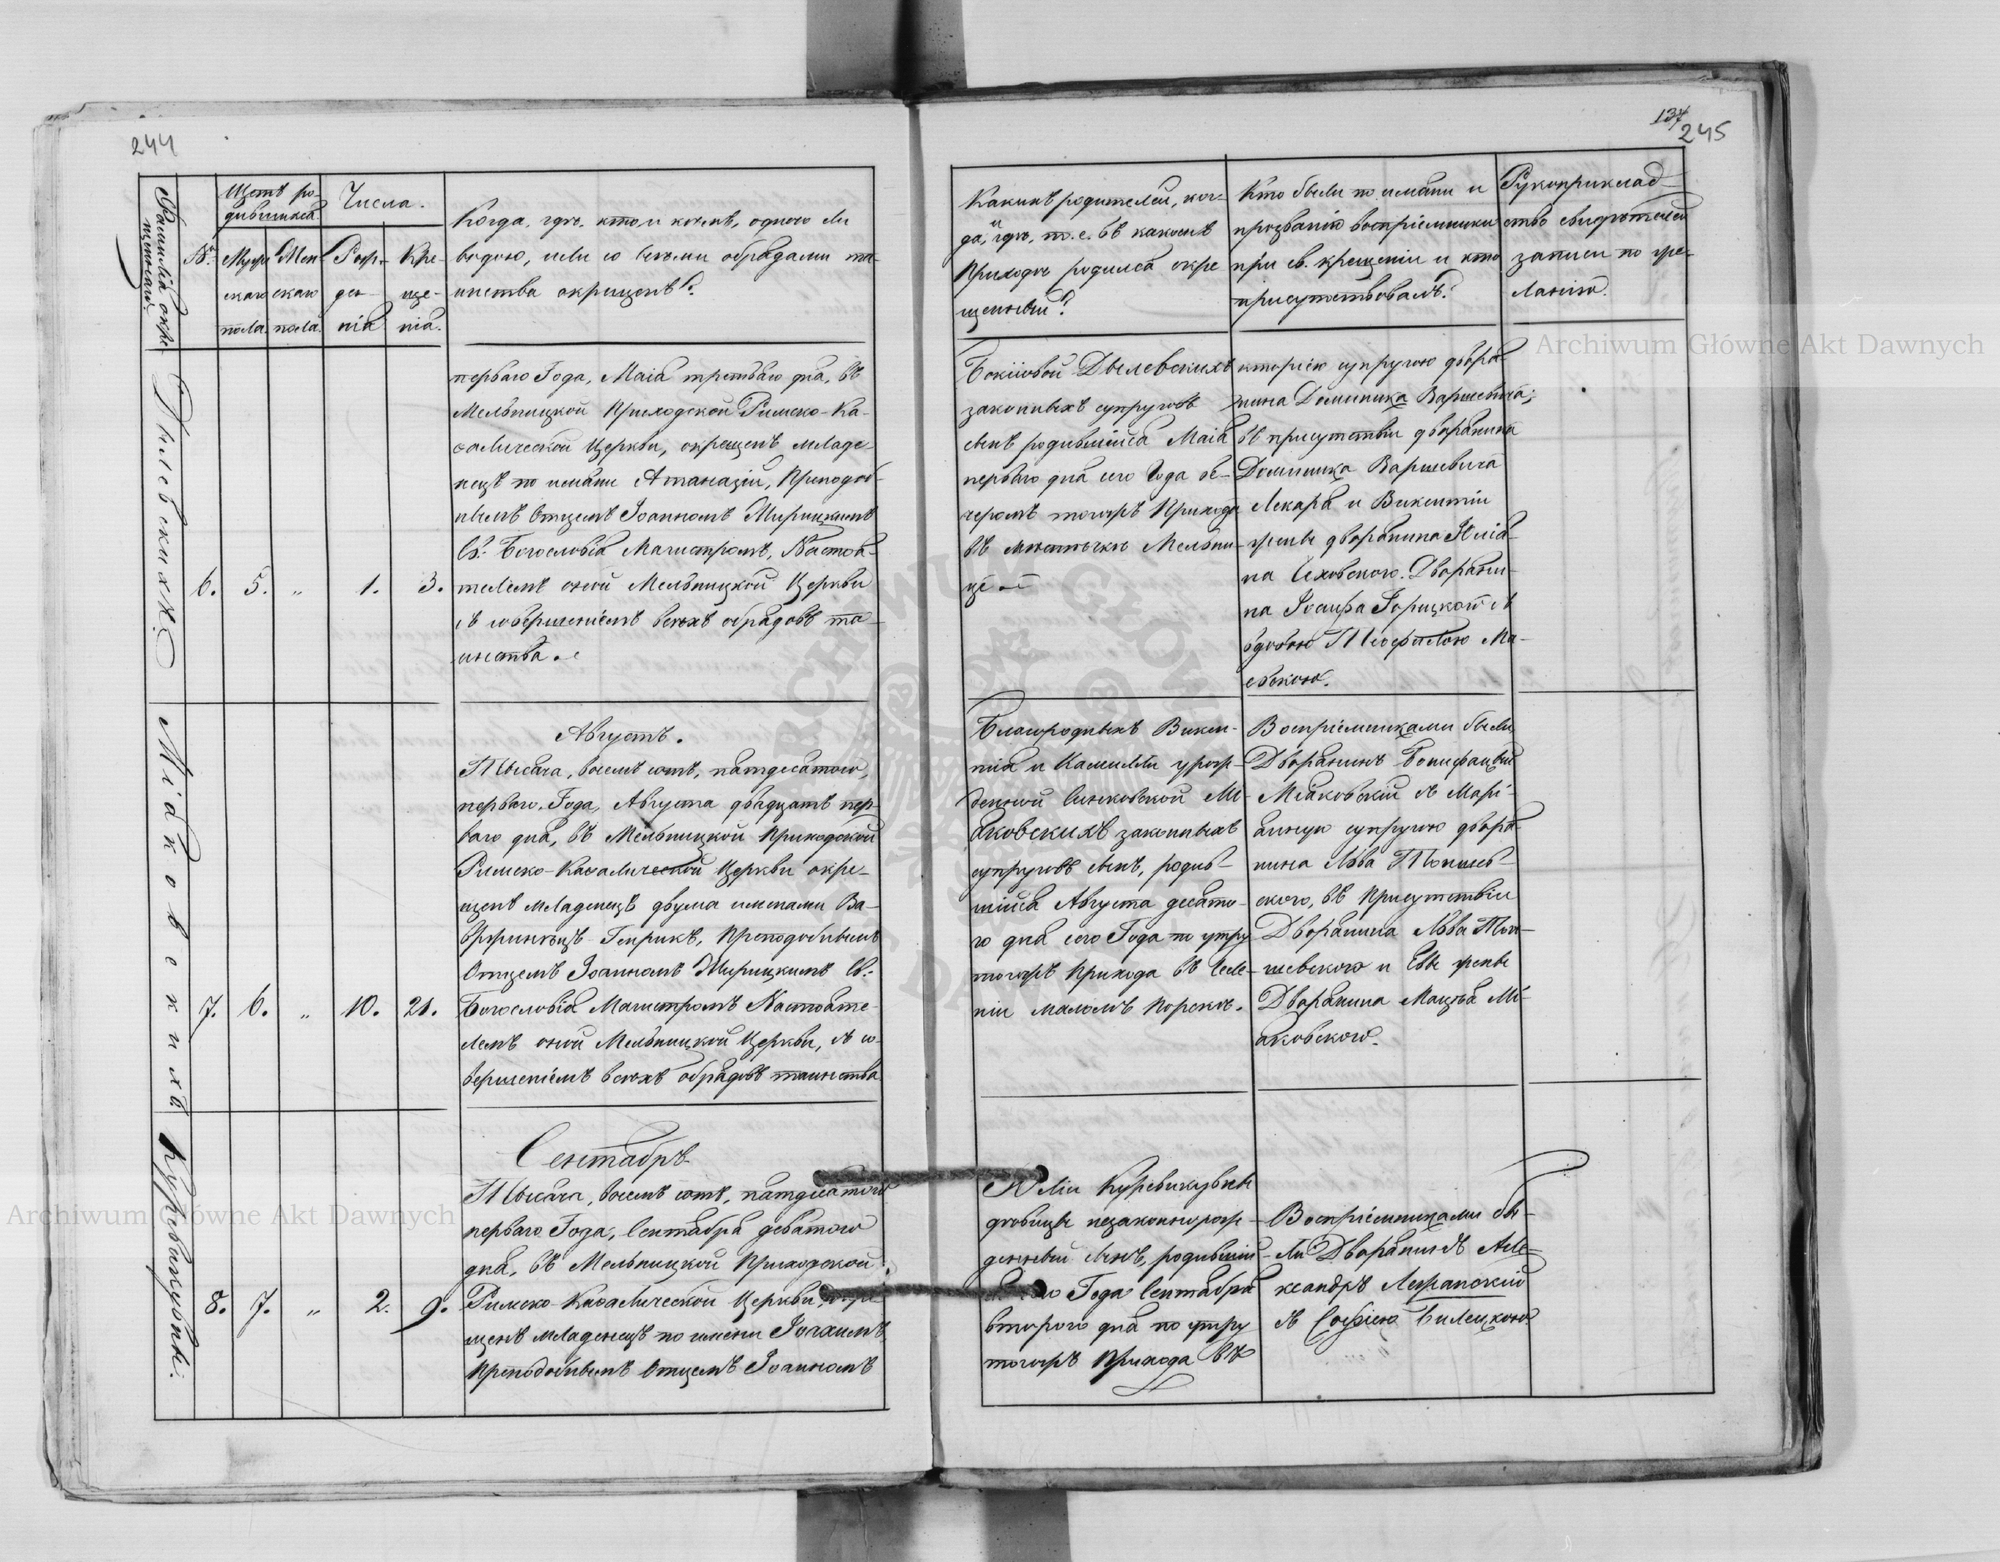 244
Фамилія окре-
щеннаго.
№
Щетъ ро-
дившихся.
Мужес-
каго
пола.
Жен-
скаго
пола.
Числа.
Рож-
де-
нія
Кре-
ще-
нія.
Когда, гдѣ, кто, и кѣмъ, одною ли
водою, или со всѣми обрядами та-
инства окрещенъ?
Дылевскихъ.
6.
5.
„
1.
3.
перваго Года, Маія третьяго дня, въ
Мельницкой Приходской Римско-Ка-
ѳолической Церкви, окрещенъ младе-
нецъ по имени Атаназій, Преподоб-
нымъ Отцемъ Іоанномъ Мирицкимъ
Св. Богословія Магистромъ, Настоя-
телемъ оной Мельницкой Церкви
съ совершеніемъ всѣхъ обрядовъ та-
инства.
Міяковскихъ
7.
6.
„
10.
21.
Августъ.
Тысяча, восемь сотъ, пятдесятого,
перваго Года, Августа двадцать пер-
ваго дня, въ Мельницкой Приходской
Римско-Каѳолической Церкви окре-
щенъ младенецъ двумя именами Ва-
вржинецъ-Генрикъ, Преподобнымъ
Отцемъ Іоанномъ Мирицкимъ Св.
Богословія Магистромъ Настояте-
лемъ оной Мельницкой Церкви, съ со-
вершеніемъ всѣхъ обрядовъ таинства
8.
7.
„
2.
9.
Сентябрь
Тысяча, восемь сотъ, пятдесятого
перваго Года, Сентября девятого
дня, въ Мельницкой Приходской
Римско-Каѳолической Церкви, окре-
щенъ младенецъ по имени Іоахимъ
Преподобнымъ Отцемъ Іоанномъ
137
245
Какихъ родителей, ког-
да, и гдѣ, т. е. въ какомъ
Приходѣ родился окре-
щенный?
Кто были по имени и
прозванію воспріемники
при св. крещеніи и кто
присутствовалъ?
Рукоприклад-
ство свидѣтелей
записи по же-
ланію.
Дылевскихъ
законныхъ супруговъ
сынъ родившійся Маія
перваго дня сего Года ве-
черомъ тогожъ Прихода
въ мѣстечкѣ Мельни-
цѣ
супругою дворя-
нина Доминика Варшевича;
въ присутствіи дворянина
Доминика Варшевича
Лекаря и Викентіи
жены дворянина Юліа-
на Чеховского. Дворяни-
на Іосифа Горицкого съ
вдовою Теофилею Ма-
евскою.
Благородныхъ Викен-
тія и Камиллі урож-
денной Синковской Мі-
яковскихъ законныхъ
супруговъ сынъ, родив-
шійся Августа десято-
го дня сего Года по утру
тогожъ Прихода въ Селе-
ніи маломъ Порскѣ.
Воспріемниками были
Дворянинъ Бонифацый
Міяковскій съ Марі-
анною супругою дворя-
нина Льва
ского, въ Присутствіи
Дворянина Льва
шевского и Евы жены
Дворянина Мацѣя Мі-
яковского.
Юліи Куревикувны
дѣвицы незаконнорож-
денный сынъ, родившій-
ся сего Года Сентября
второго дня по утру
тогожъ Прихода въ
Воспріемниками бы-
ли Дворянинъ Але-
ксандръ
съ Софіею Билецкою
Archiwum Główne Akt Dawnych
Archiwum Główne Akt Dawnych